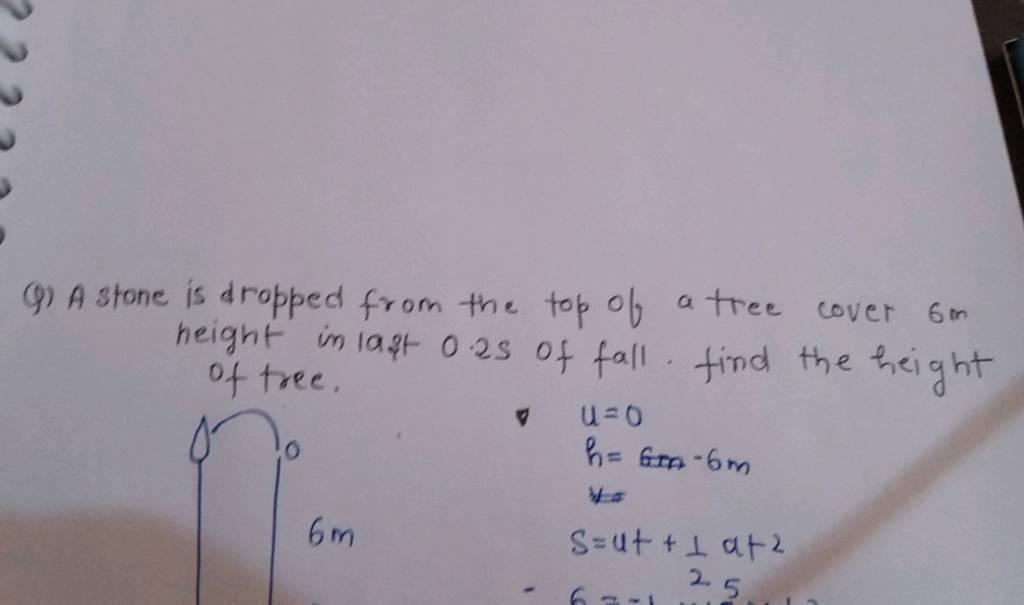 Q) A stone is dropped from the top of a tree cover 6m
height in last 0.2s of fall. find the height
of tree.
u=0
h= 6m -6m
6m
s=ut + 1 at2
2 5
- 6 = -1